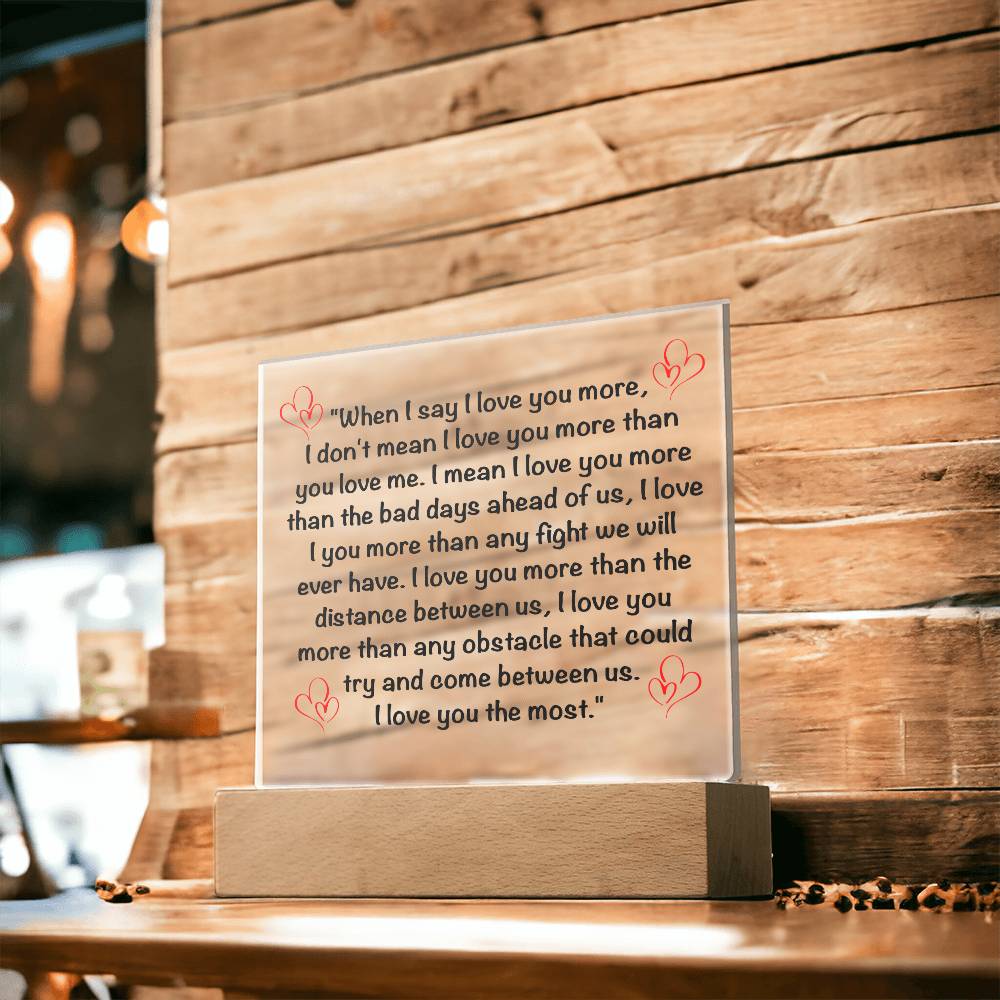 "When I say I love you more,
I don't mean I love you more than
you love me. I mean I love you more
than the bad days ahead of us, I love
I you more than any fight we will
ever have. I love you more than the
distance between us, I love you
more than any obstacle that could
try and come between us.
I love you the most."